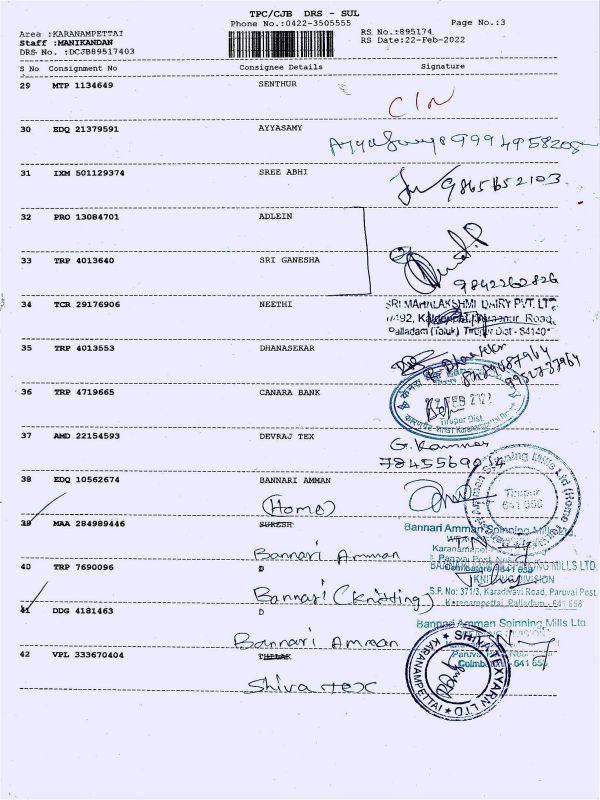 TPC/CJB DRS - SUL
Phone No.:0422-3505555
Page No.:3
Area :KARANAMPETTAI
Staff :MANIKANDAN
DRS No. :DCJB89517403
RS No.:895174
RS Date:22-Feb-2022
S No Consignment No Consignee Details Signature
29 MTP 1134649 SENTHUR
30 EDQ 21379591 AYYASAMY
31 IXM 501129374 SREE ABHI
9865652103
32 PRO 13084701 ADLEIN
33 TRP 4013640 SRI GANESHA
9842262826
34 TCR 29176906 NEETHI
SRI MAHALAKSHMI DAIRY PVT. LTD
Palladam (Taluk) Tirupur Dist
35 TRP 4013553 DHANASEKAR
36 TRP 4719665 CANARA BANK
Tirupur Dist.
37 AMD 22154593 DEVRAJ TEX
38 EDQ 10562674 BANNARI AMMAN
(Home)
Tirupur
39 MAA 284989446 SURESH
Bannari Amman
Bannari Amman Spinning Mills Ltd
40 TRP 7690096
Bannari (Knitting)
BANNARI AMMAN SPINNING MILLS LTD.
KNITTING DIVISION
S.F. No: 371/3, Karadivavi Road, Paruvai Post
Karanampettai, Palladam - 641 658
41 DDG 4181463 D
Bannari Amman
Bannari Amman Spinning Mills Ltd
42 VPL 333670404 THILAK
Shiva tex
SHIVA TEXYARN LTD
KARANAMPETTAI